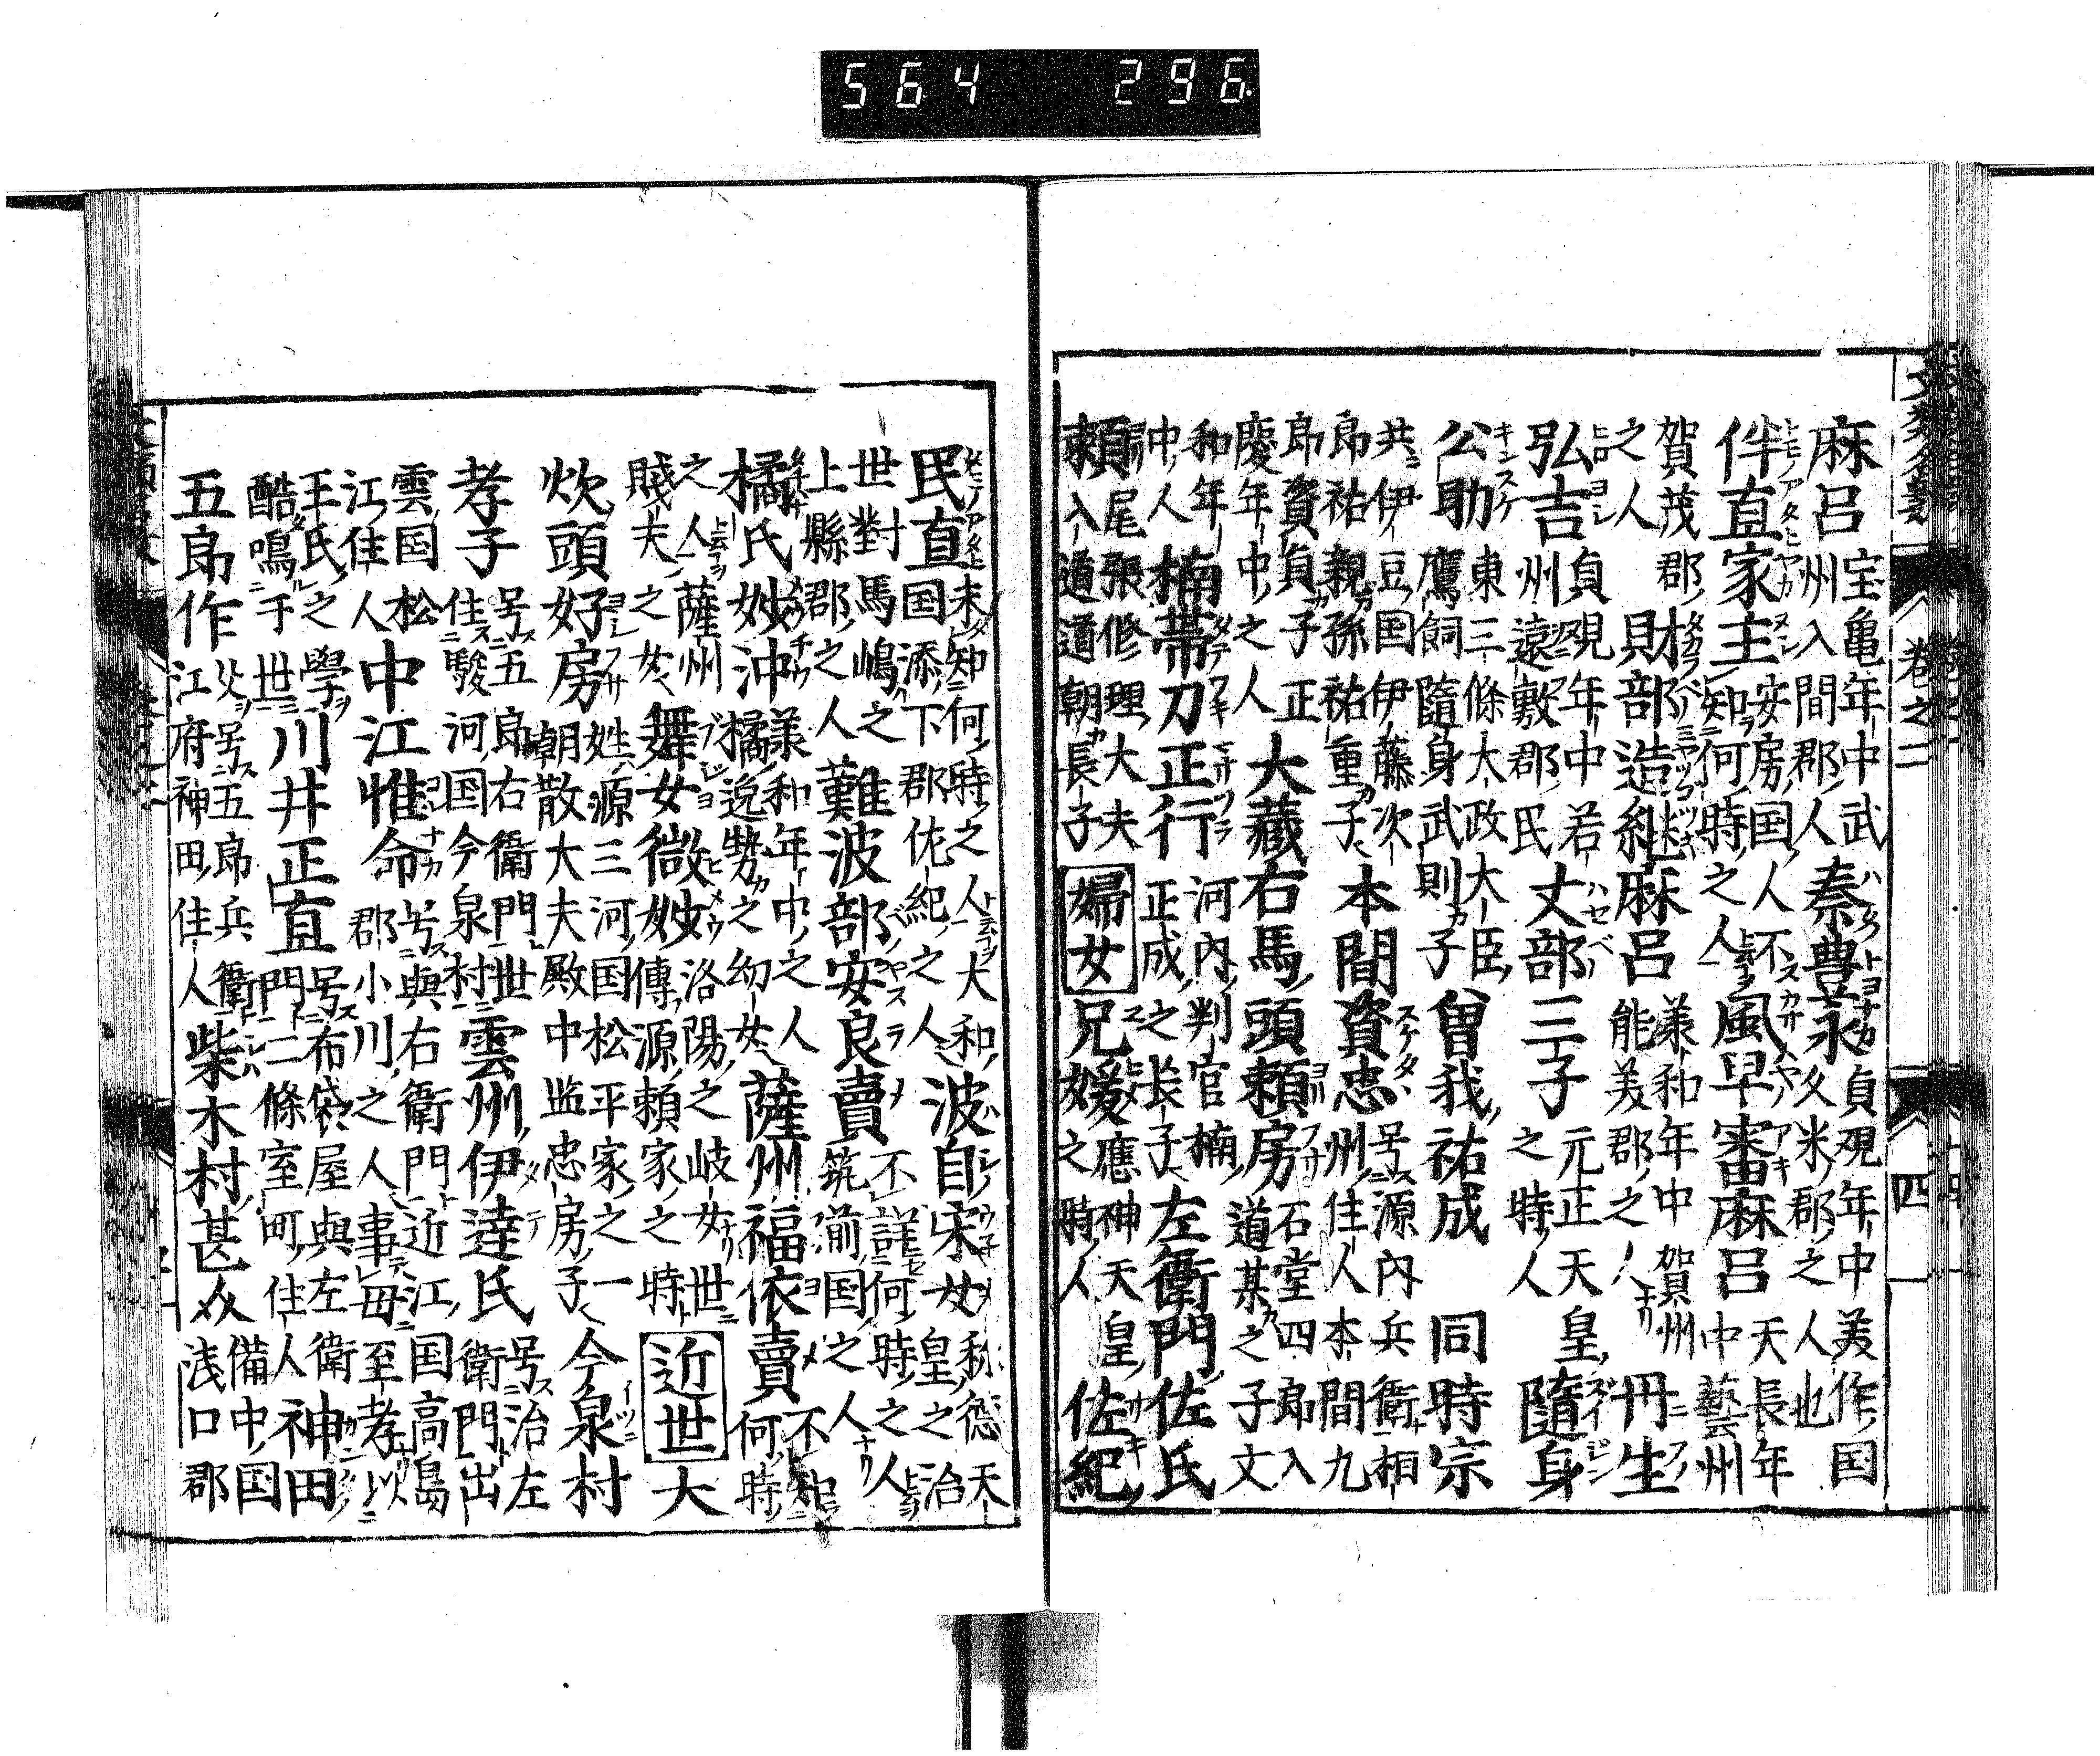 564 296
卷之二
四
麻呂 宝亀年中武州入間郡人 秦豊永 貞観年中美作国久米郡之人也
伴直家主 安房国人不知何時之人 風早審麻呂 天長年中藝州
賀茂郡之人 財部造継麻呂 承和年中賀州能美郡之人 丹生
弘吉 貞観年中若州遠敷郡民 丈部三子 元正天皇之時人 隨身
公助 東三條大政大臣鷹飼隨身武則子 曽我祐成 同時宗
共伊豆国伊藤次郎祐親孫祐重子 本間資忠 号源内兵衛相州住人本間九
郎資貞子正慶年中之人 大藏右馬頭頼房 石堂四郎入道某之子文
和年中人 楠帯刀正行 河内判官楠正成之長子 左衛門佐氏
頼 尾張修理大夫入道道朝長子 婦女 兄媛 應神天皇之時人 佐紀
民直 大和国添下郡佐紀之人未知何時之人 波自宋女 称徳天皇之治
世對馬嶋上縣郡之人 難波部安良賣 不詳何時之人筑前国之人
橘氏妙沖 承和年中之人橘逸勢之幼女 薩州福依賣 不知何時
之人薩州賤夫之女 舞女微妙 洛陽之岐女世傳源頼家之時 近世 大
炊頭好房 姓源三河国松平家之一朝散大夫殿中監忠房子 今泉村
孝子 号五郎右衛門世住駿河国今泉村 雲州伊達氏 号治左衛門出
雲国松江住人 中江惟命 号與右衛門近江国高島郡小川之人事母至孝以
王氏之學酷鳴于世 川井正直 号布袋屋與左衛門二條室町住人 神田
五郎作 父号五郎兵衛江府神田住人 柴木村甚介 備中国浅口郡